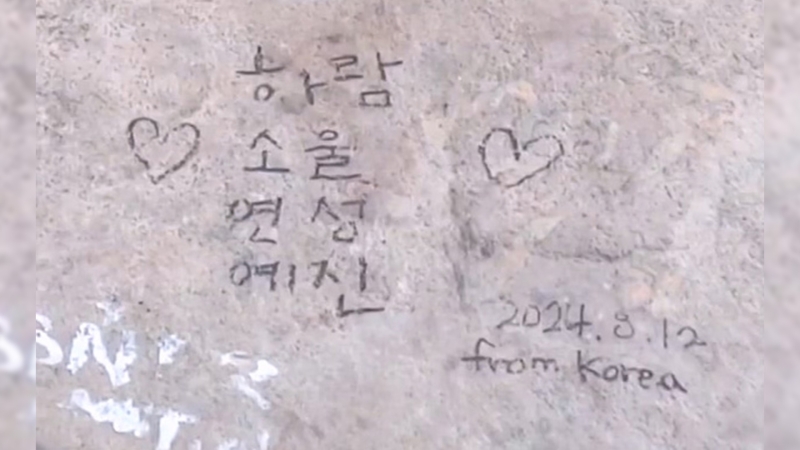 하람
소울
연성
예진
2024. 8. 12
from Korea